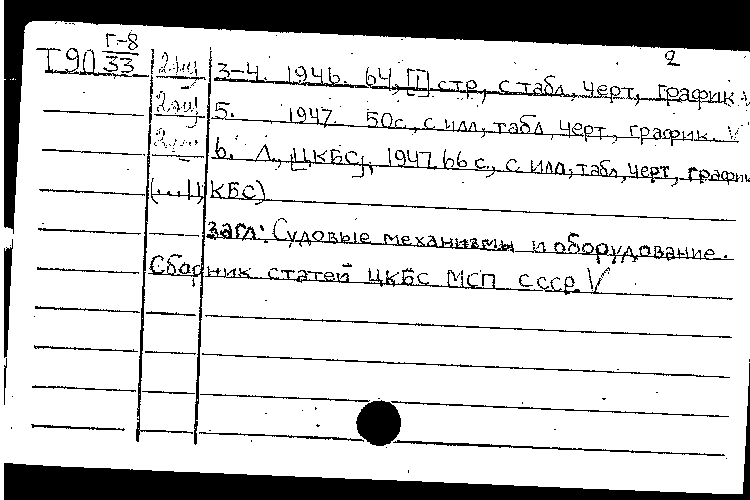 2
Т90 Г-8/33 2 экз 3-4. 1946. 64, [1] стр, с табл, черт, график
2 экз 5. 1947. 50с., с илл, табл, черт, график. V
6. Л., [ЦКБС], 1947. 66 с., с илл, табл, черт, графи
(...Ц КБС)
загл: Судовые механизмы и оборудование.
Сборник статей ЦКБС МСП СССР. V